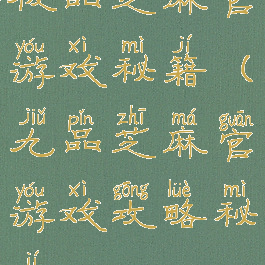 品芝麻官
yóu xì mì jí
游戏秘籍（
jiǔ pǐn zhī má guān
九品芝麻官
yóu xì gōng lüè mì
游戏攻略秘
jí